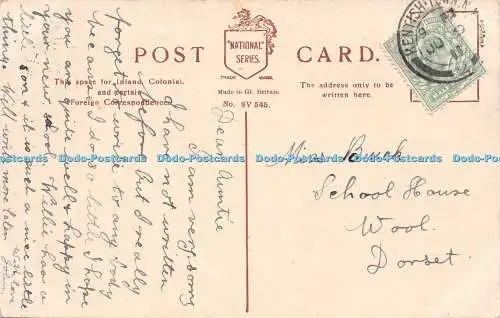 POST CARD.
"NATIONAL"
SERIES.
TRADE MARK
This space for Inland, Colonial,
and certain
Foreign Correspondence.
Made in Gt. Britain
No. SV 545.
The address only to be
written here.
Dear Auntie
I am very sorry
I have not written
before but I really
forget to write to any body
because I do so little I hope
you are quite well & happy in
your new school Willie has a
little son & it is such a nice little
thing. Will write more later
With love
Miss Buck
School House
Wool.
Dorset.
Dodo-Postcards.com